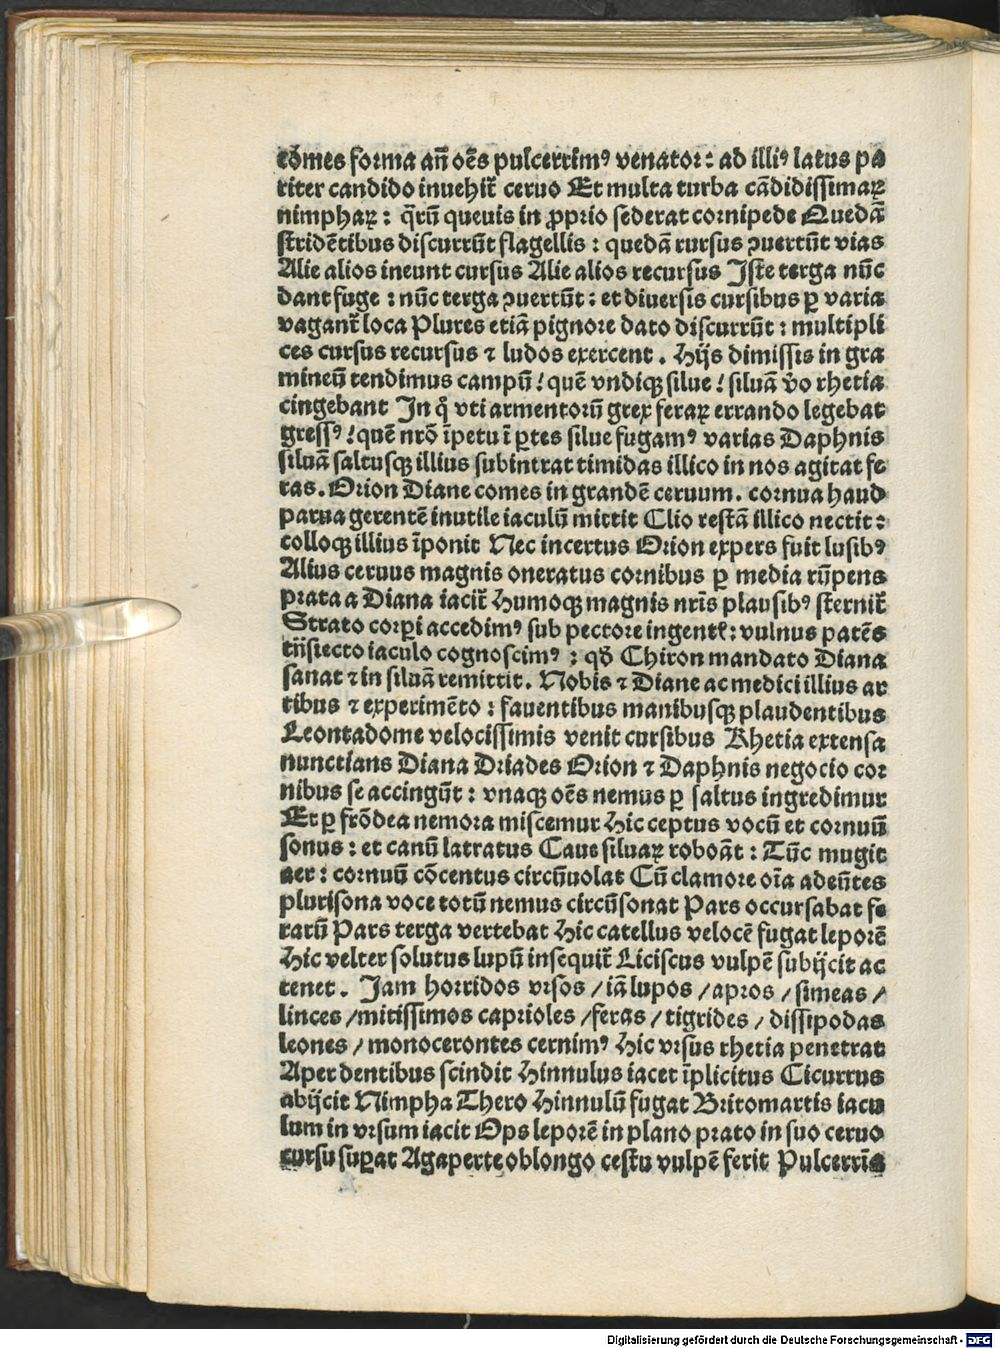 cõmes forma añ oēs pulcerrimꝰ venator: ad illiꝰ latus pa
riter candido inuehit᷑ ceruo Et multa turba cādidissimaꝝ
nimphaꝝ: q̄rū queuis in ꝓprio sederat cornipede Quedā
stridētibus discurrūt flagellis: quedā rursus ꝯuertūt vias
Alie alios ineunt cursus Alie alios recursus Iste terga nūc
dant fuge: nūc terga ꝯuertūt: et diuersis cursibus ꝑ varia
vagant᷑ loca Plures etiā pignore dato discurrūt: multipli
ces cursus recursus ⁊ ludos exercent. Hijs dimissis in gra
mineū tendimus campū! quē vndiqꝫ silue! siluā v̊o rhetia
cingebant In q̊ vti armentorū grex feraꝝ errando legebat
gressꝰ! quē nrō īpetu ī ꝑtes silue fugamꝰ varias Daphnis
siluā saltusqꝫ illius subintrat timidas illico in nos agitat fe
ras. Orion Diane comes in grandē ceruum. cornua haud
parua gerentē inutile iaculū mittit Clio restā illico nectit:
colloqꝫ illius īponit Nec incertus Orion expers fuit lusibꝰ
Alius ceruus magnis oneratus cornibus ꝑ media rūpens
prata a Diana iacit᷑ Humoqꝫ magnis nrīs plausibꝰ sternit᷑
Strato corꝑi accedimꝰ sub pectore ingentē: vulnus patēs
iniecto iaculo cognoscimꝰ: qď Chiron mandato Diana
sanat ⁊ in siluā remittit. Nobis ⁊ Diane ac medici illius ar
tibus ⁊ experimēto: fauentibus manibusqꝫ plaudentibus
Leontadome velocissimis venit cursibus Rhetia extensa
nunctians Diana Driades Orion ⁊ Daphnis negocio cor
nibus se accingūt: vnaqꝫ oēs nemus ꝑ saltus ingredimur
Et ꝑ frōdea nemora miscemur Hic ceptus vocū et cornuū
sonus: et canū latratus Caue siluaꝝ roboāt: Tūc mugit
aer: cornuū cōcentus circūuolat Cū clamore oīa adeūtes
plurisona voce totū nemus circūsonat Pars occursabat fe
rarū Pars terga vertebat Hic catellus velocē fugat leporē
Hic velter solutus lupū insequit᷑ Liciscus vulpē subijcit ac
tenet. Jam horridos vrsos / iā lupos / apros / simeas /
linces / mitissimos caprioles / feras / tigrides / dissipodas
leones / monocerontes cernimꝰ Hic vrsus rhetia penetrat
Aper dentibus scindit Hinnulus iacet īplicitus Cicurrus
abijcit Nimpha Thero Hinnulū fugat Britomartis iacu
lum in vrsum iacit Ops leporē in plano prato in suo ceruo
cursu suꝑat Agaperte oblongo cestu vulpē ferit Pulcerrīa
Digitalisierung gefördert durch die Deutsche Forschungsgemeinschaft - DFG